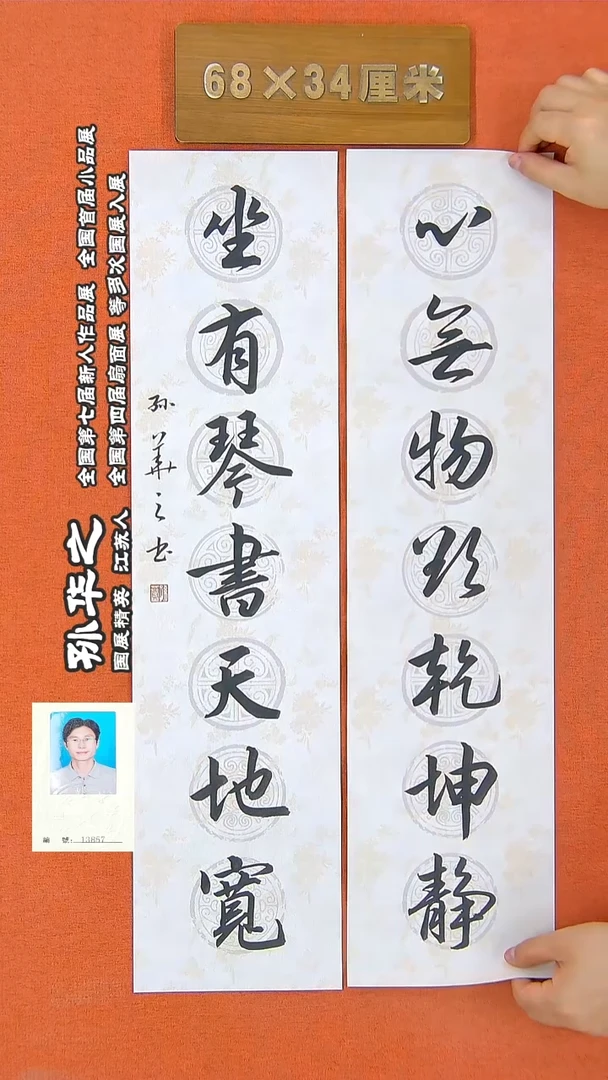 68×34厘米
心無物欲乾坤静
坐有琴書天地寬
孙華之书
孙华之
国展精英 江苏人
全国第七届新人作品展 全国首届小品展
全国第四届扇面展 等多次国展入展
編 號: 13857